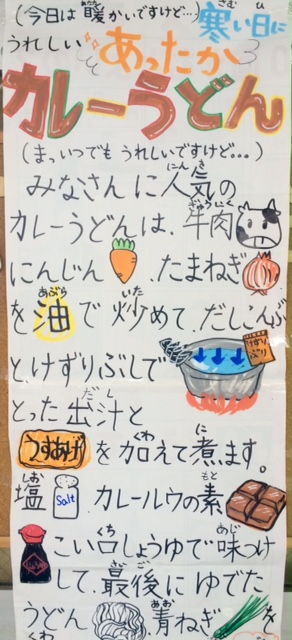 (今日は暖かいですけど…)寒い日に
うれしい あったか
カレーうどん
(まっいつでもうれしいですけど…)
みなさんに人気の
カレーうどんは、牛肉
にんじん、たまねぎ
を油で炒めて、だしこんぶ
と、けずりぶしで
けずりぶし
とった出汁と
うすあげを加えて煮ます。
塩 Salt、カレールウの素
こい口しょうゆで味つけ
して、最後にゆでた
うどん 青ねぎを